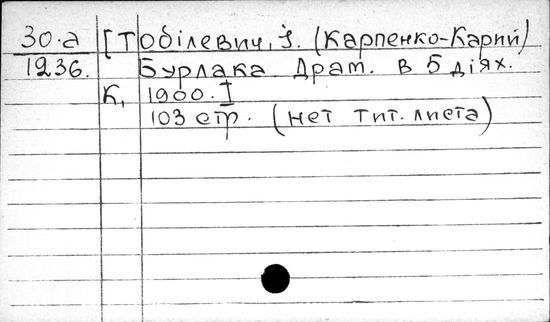 30.а [Тобілевич, І. (Карпенко-Карий)
1236. Бурлака Драт. в 5 діях.
К, 1900.]
103 стр. (нет тит. листа)